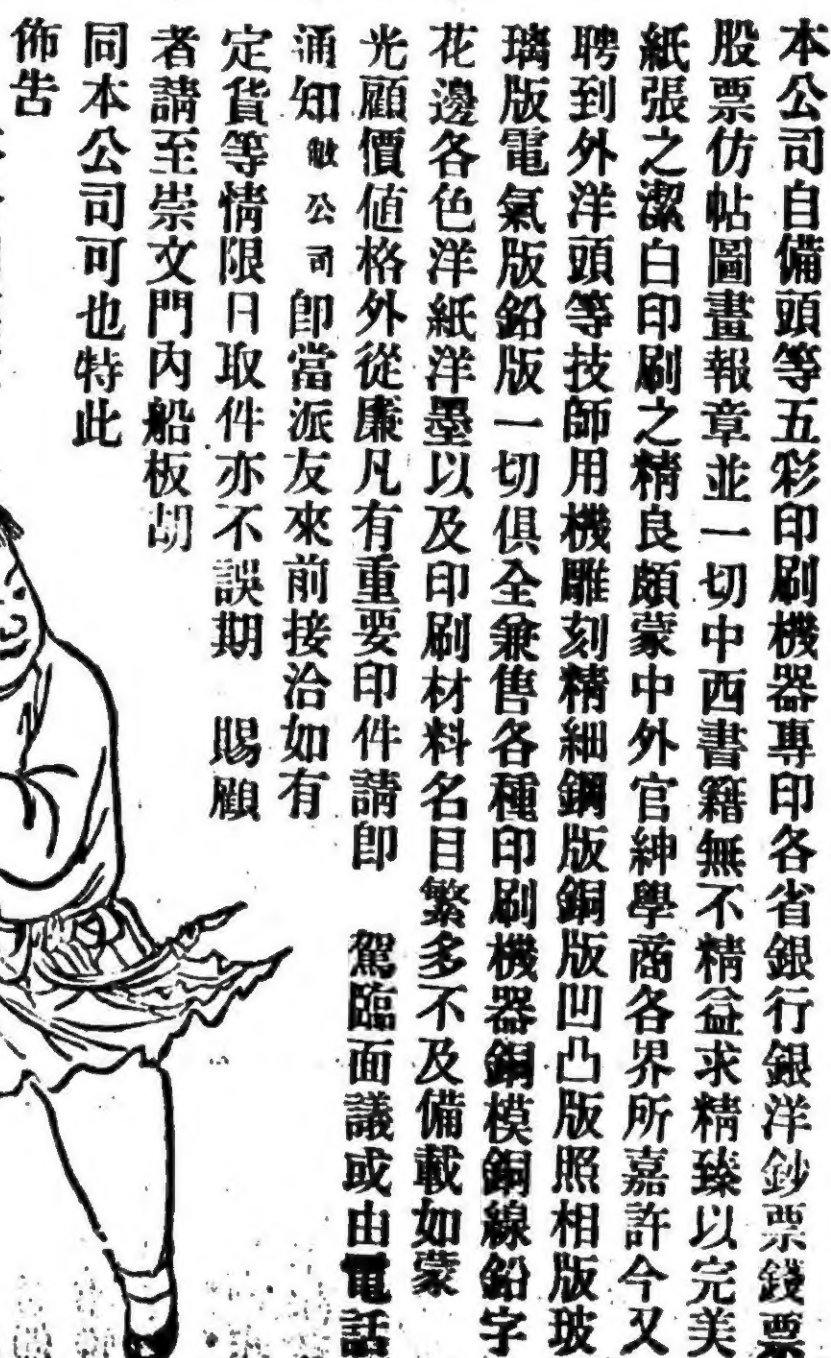 本公司自備頭等五彩印刷機器專印各省銀行銀洋鈔票錢票
股票仿帖圖畫報章並一切中西書籍無不精益求精臻以完美
紙張之潔白印刷之精良頗蒙中外官紳學商各界所嘉許今又
聘到外洋頭等技師用機雕刻精細鋼版銅版凹凸版照相版玻
璃版電氣版鉛版一切俱全兼售各種印刷機器銅模銅線鉛字
花邊各色洋紙洋墨以及印刷材料名目繁多不及備載如蒙
光顧價值格外從廉凡有重要印件請即 駕臨面議或由電話
通知敝公司即當派友來前接洽如有
定貨等情限日取件亦不誤期 賜顧
者請至崇文門內船板胡
同本公司可也特此
佈告